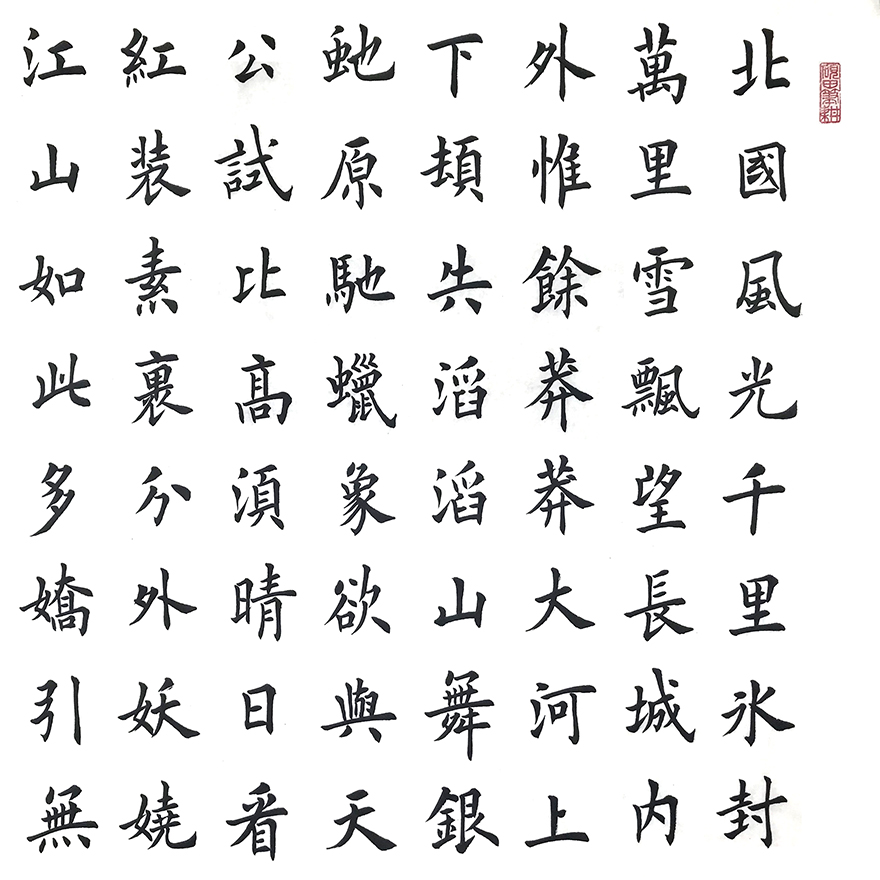 硯田筆耕
北國風光千里氷封
萬里雪飄望長城内
外惟餘莽莽大河上
下頓失滔滔山舞銀
虵原馳蠟象欲與天
公試比髙湏晴日看
紅装素裹分外妖嬈
江山如此多嬌引無